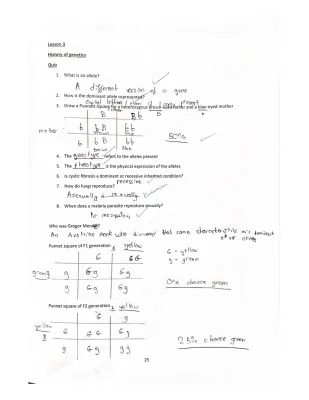 Lesson 3
History of genetics
Quiz
1. What is an allele?
A different version of a gene
2. How is the dominant allele represented?
Capital letters / even if 1 copy present
3. Draw a Punnett square for a heterozygous brown eyed father and a blue eyed mother
B b
mother b Bb bb 50%
b Bb bb
4. The genotype refers to the alleles present
5. The phenotype is the physical expression of the alleles
6. Is cystic fibrosis a dominant or recessive inherited condition?
recessive
7. How do fungi reproduce?
Asexually & sexually
8. When does a malaria parasite reproduce sexually?
in mosquito
Who was Gregor Mendel?
An Austrian monk who discovered that some characteristics are dominant
over others
Punnet square of F1 generation yellow
G G
green g Gg Gg
g Gg Gg
G = yellow
g = green
0% chance green
Punnet square of F2 generation yellow
G g
yellow G GG Gg
g Gg gg
25% chance green
25